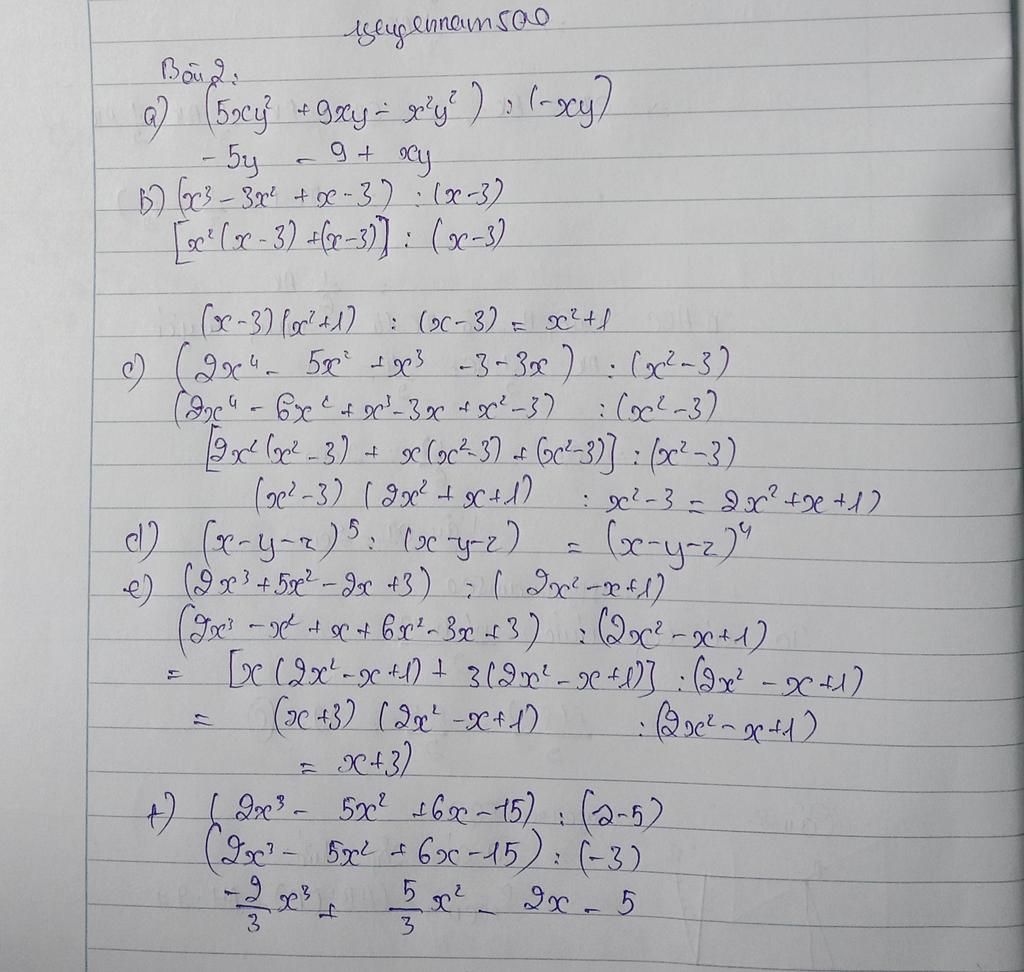 Bài 2:
a) (5xy² + 9xy - x²y²) : (-xy)
- 5y - 9 + xy
b) (x³ - 3x² + x - 3) : (x-3)
[x²(x-3) +(x-3)] : (x-3)
(x-3)(x²+1) : (x-3) = x²+1
c) (2x⁴ - 5x² + x³ -3 - 3x) : (x²-3)
(2x⁴ - 6x² + x³ - 3x + x² - 3) : (x²-3)
[2x²(x²-3) + x(x²-3) + (x²-3)] : (x²-3)
(x²-3) (2x² + x + 1) : x²-3 = 2x² + x + 1)
d) (x-y-z)⁵ : (x-y-z) = (x-y-z)⁴
e) (2x³ + 5x² - 2x + 3) : (2x² - x + 1)
(2x³ - x² + x + 6x² - 3x + 3) : (2x² - x + 1)
= [x(2x² - x + 1) + 3(2x² - x + 1)] : (2x² - x + 1)
= (x+3) (2x² - x + 1) : (2x² - x + 1)
= x+3)
f) (2x³ - 5x² + 6x - 15) : (2-5)
(2x³ - 5x² + 6x - 15) : (-3)
-2/3 x³ + 5/3 x² - 2x - 5